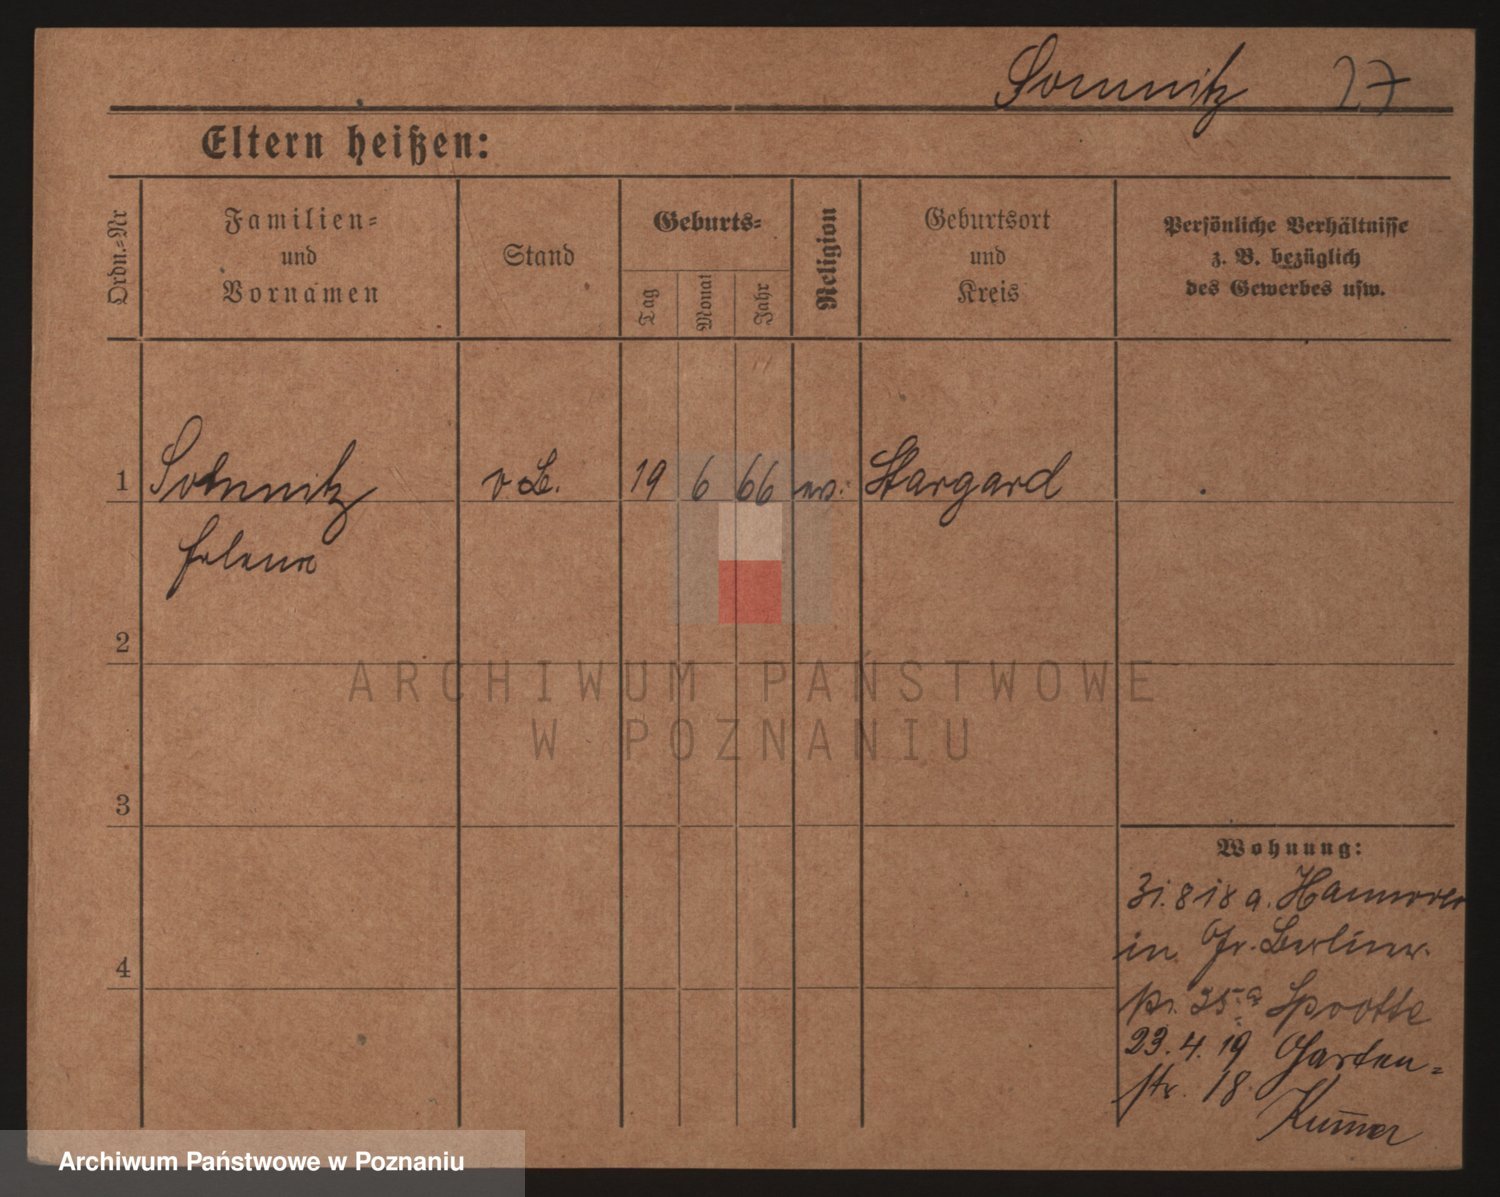 Somnitz 27
Eltern heißen:
Ordn.=Nr
Familien=
und
Vornamen
Stand
Geburts=
Tag
Monat
Jahr
Religion
Geburtsort
und
Kreis
Persönliche Verhältnisse
z. B. bezüglich
des Gewerbes usw.
1 Somnitz 19 6 66 ev. Stargard
Helene
2
3
4
ARCHIWUM PAŃSTWOWE
W POZNANIU
Wohnung:
31. 8 18 a. Hannover
in Gr. Berliner
str. 35 a Sprotte
23. 4. 19 Garten=
str. 18.
Archiwum Państwowe w Poznaniu